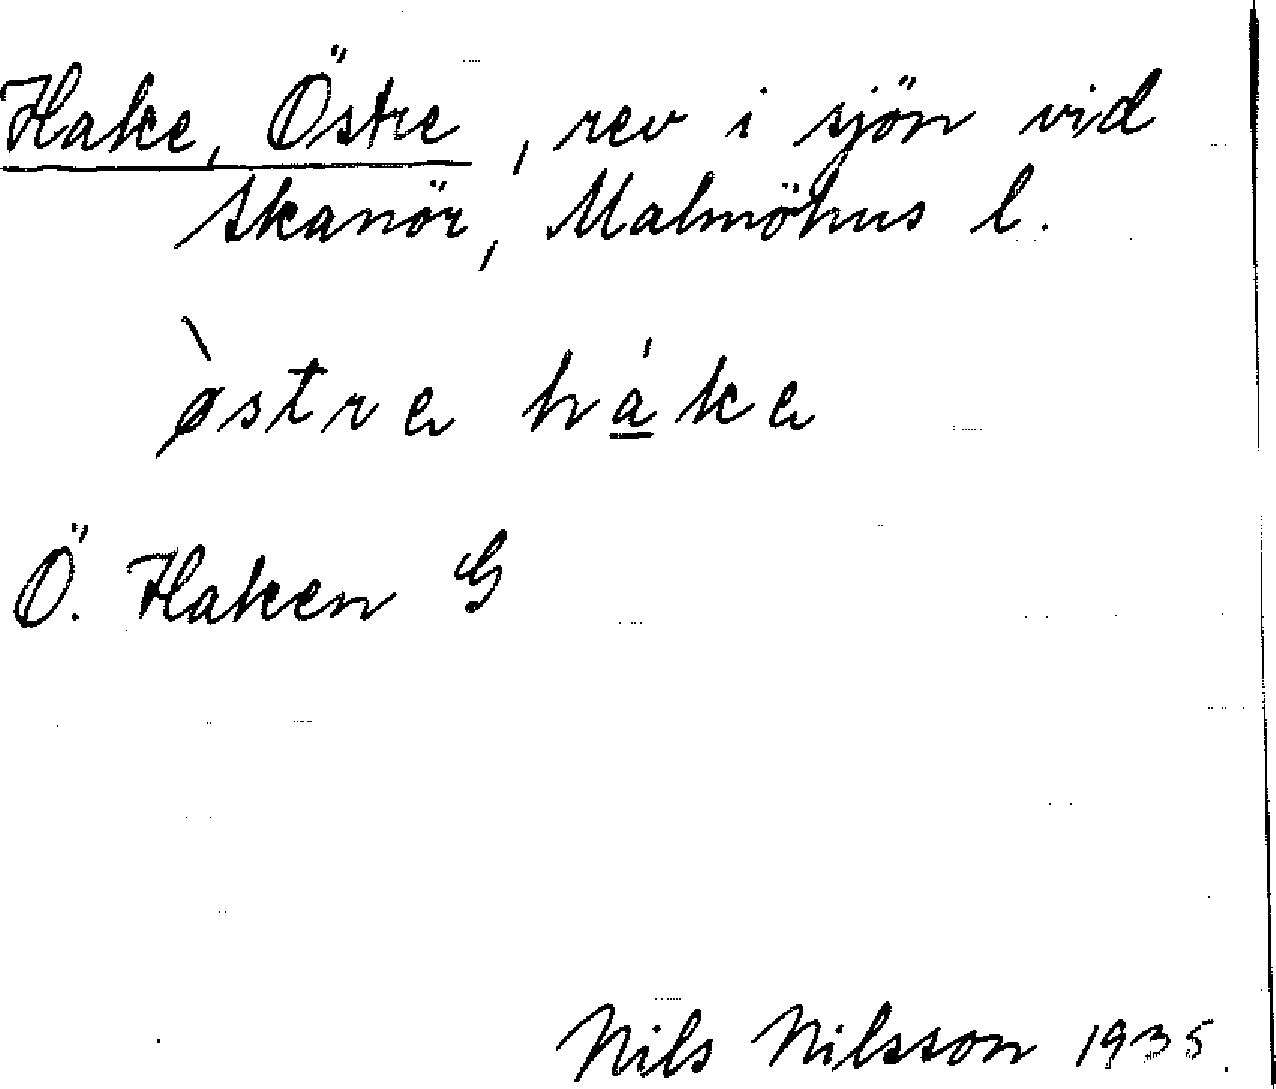 Hake, Östre, rev i sjön vid
Skanör, Malmöhus l.
ø̀stre há̱ke
Ö. Haken G
Nils Nilsson 1935.